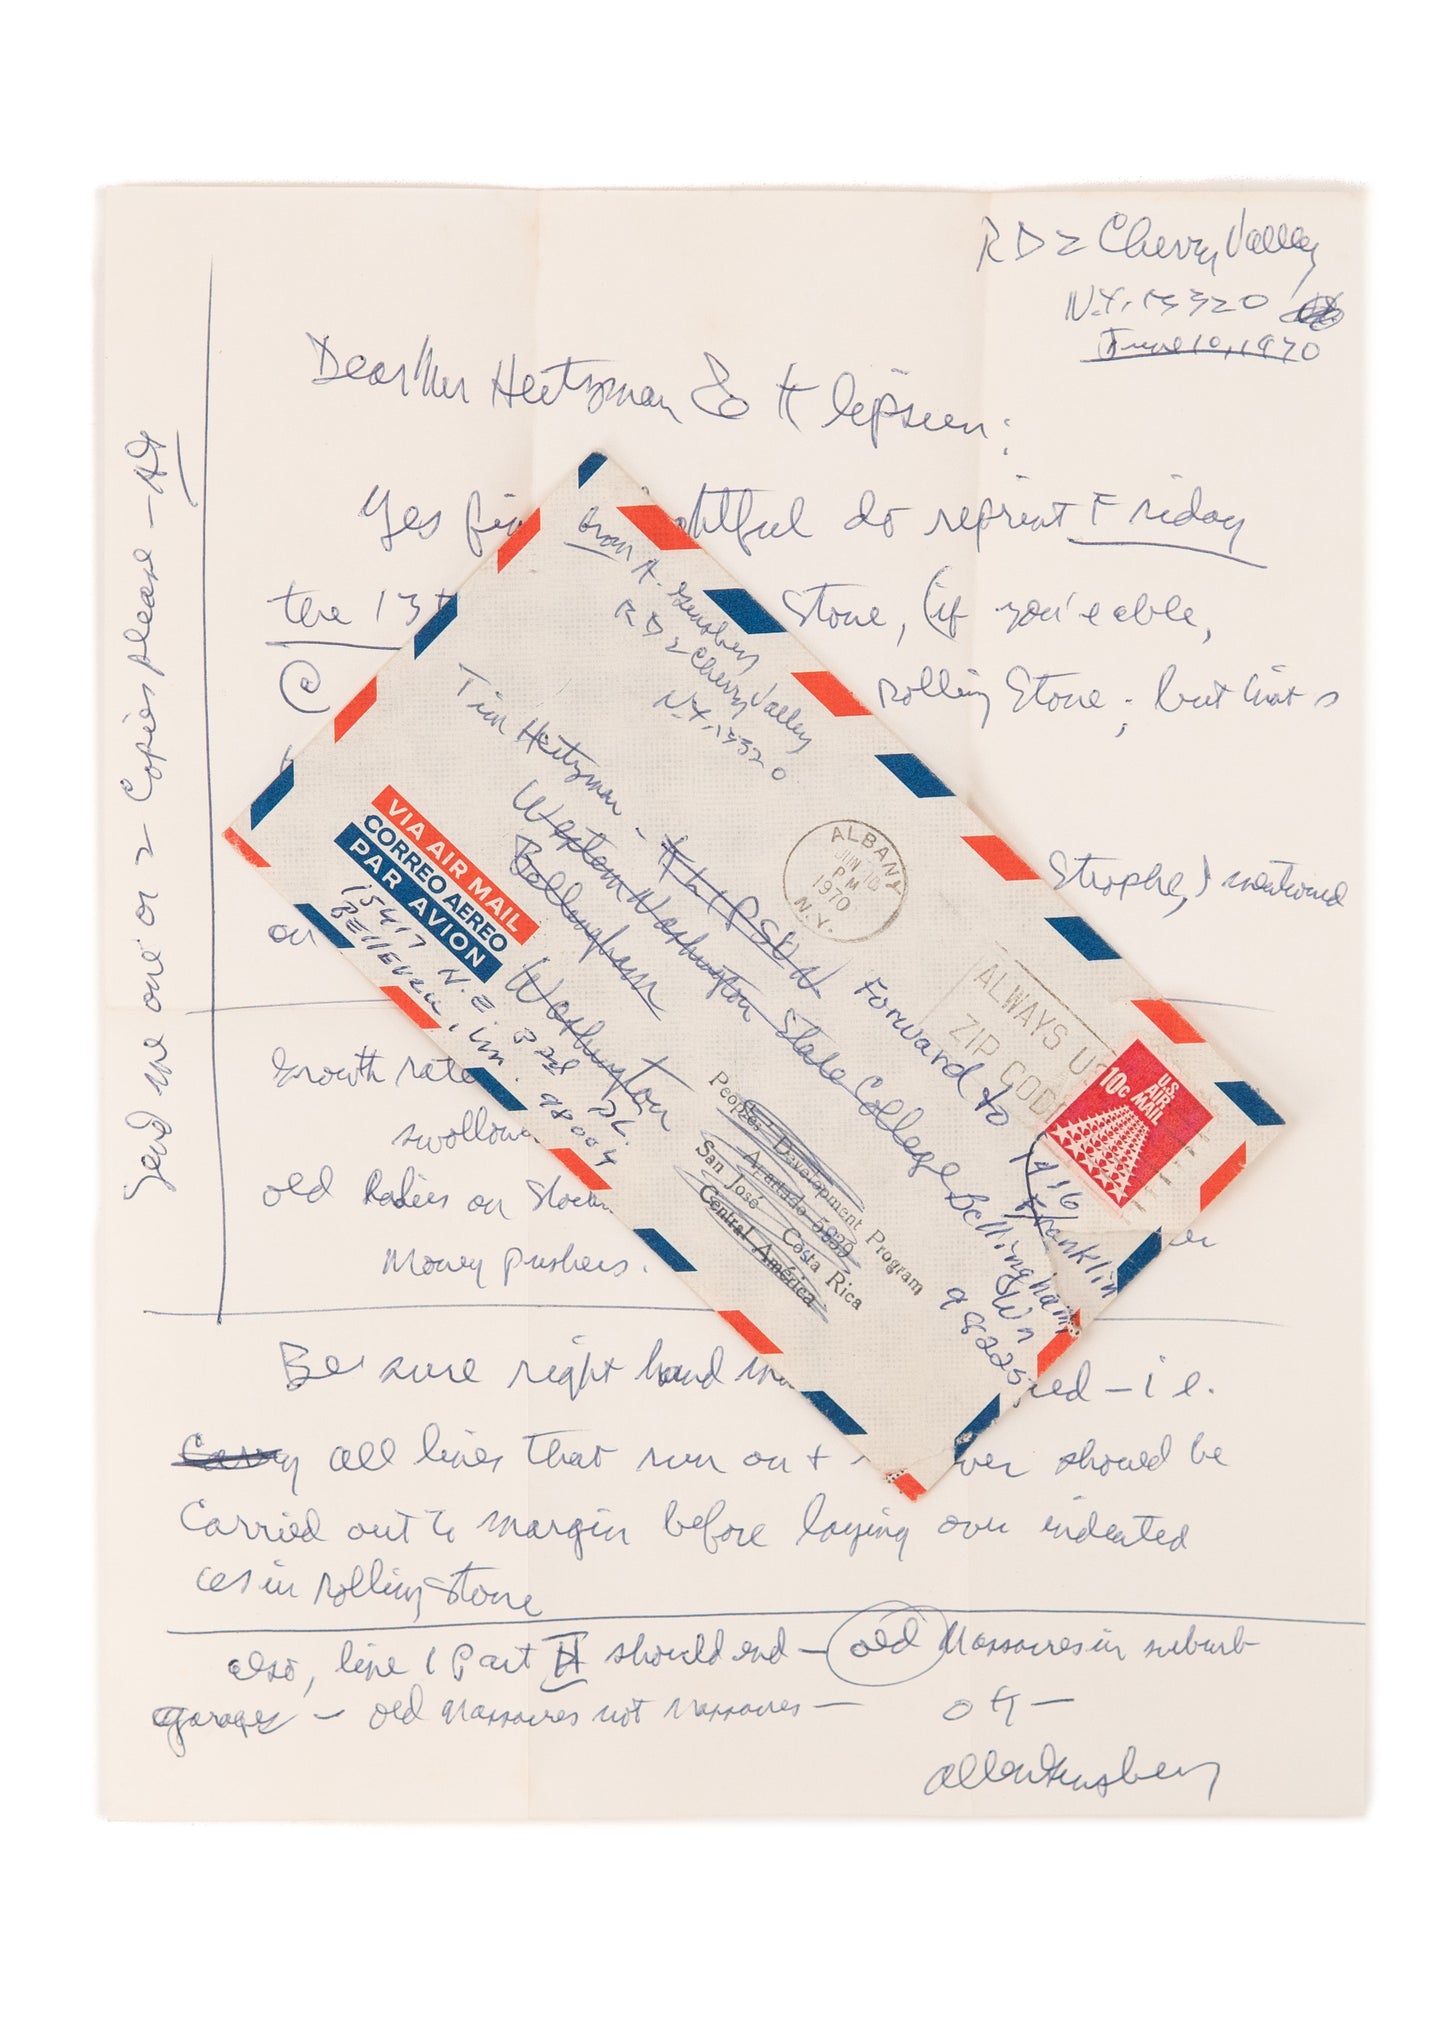 RD 2 Cherry Valley
N.Y. 13320
June 10, 1970
Dear Mr Heitzman & Klipsun:
Yes fin htful do reprint Friday
the 13t Stone, (if you're able,
© Rolling Stone; but that's
Strophe, I mentioned
on
Growth rate
swollow
old ladies on er
Money pushers.
Be sure right hand ma ed – i e.
Carry all lines that run on + ver should be
Carried out to margin before laying over indented
as in Rolling Stone
also, line 1 Part II should end – old Massacres in suburb
garages – old Massacres not Massacres – OK –
Allen Ginsberg
Send me one or 2 Copies please – AG
from A. Ginsberg
RD 2 Cherry Valley
N.Y. 13320
Tim Heitzman – KLIPSUN
Western Washington State College
Bellingham
Washington
Forward to
1416
Franklin
Bellingham
Wn
98225
VIA AIR MAIL
CORREO AEREO
PAR AVION
15417 N.E. 3rd Pl.
Bellevue, Wn. 98004
ALBANY
JUN 10
PM
1970
N.Y.
ALWAYS US
ZIP CODE
10c
U.S.
AIR
MAIL
Peoples Development Program
Apartado 5639
San José Costa Rica
Central América